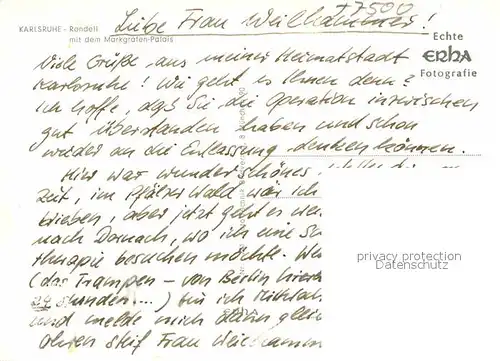 +7500
KARLSRUHE - Rondell
mit dem Markgrafen-Palais
Echte
ERHA
Fotografie
Liebe Frau Weilhammer!
Viele Grüße aus meiner Heimatstadt
Karlsruhe! Wie geht es Ihnen denn?
Ich hoffe, daß Sie die Operation inzwischen
gut überstanden haben und schon
wieder an die Entlassung denken können.
Hier war wunderschönes
Zeit, im Pfälzer Wald wär ich
blieben, aber jetzt geht es
nach Dornach, wo ich eine
therapie besuchen möchte.
(das Trampen - von Berlin
24 Stunden...) bin ich
und melde mich dann
Ohren steif Frau
privacy protection
Datenschutz